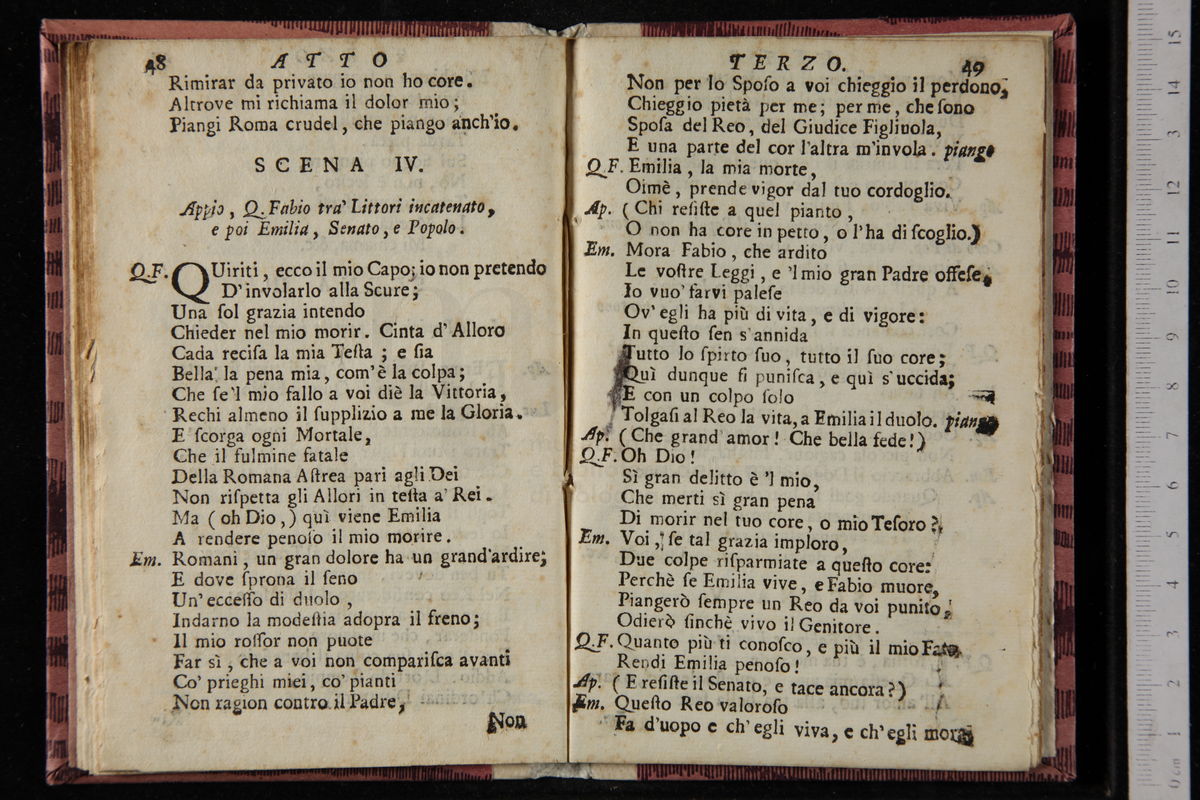 48 ATTO
Rimirar da privato io non ho core.
Altrove mi richiama il dolor mio;
Piangi Roma crudel, che piango anch'io.
SCENA IV.
Appio, Q. Fabio tra' Littori incatenato,
e poi Emilia, Senato, e Popolo.
Q.F. QUiriti, ecco il mio Capo; io non pretendo
D'involarlo alla Scure;
Una ſol grazia intendo
Chieder nel mio morir. Cinta d'Alloro
Cada reciſa la mia Teſta; e ſia
Bella la pena mia, com'è la colpa;
Che ſe'l mio fallo a voi diè la Vittoria,
Rechi almeno il ſupplizio a me la Gloria.
E ſcorga ogni Mortale,
Che il fulmine fatale
Della Romana Aſtrea pari agli Dei
Non riſpetta gli Allori in teſta a' Rei.
Ma (oh Dio,) quì viene Emilia
A rendere penoſo il mio morire.
Em. Romani, un gran dolore ha un grand'ardire;
E dove ſprona il ſeno
Un'ecceſſo di duolo,
Indarno la modeſtia adopra il freno;
Il mio roſſor non puote
Far sì, che a voi non compariſca avanti
Co' prieghi miei, co' pianti
Non ragion contro il Padre,
Non
TERZO. 49
Non per lo Spoſo a voi chieggio il perdono,
Chieggio pietà per me; per me, che ſono
Spoſa del Reo, del Giudice Figliuola,
E una parte del cor l'altra m'invola. piange
Q.F. Emilia, la mia morte,
Oimè, prende vigor dal tuo cordoglio.
Ap. (Chi reſiſte a quel pianto,
O non ha core in petto, o l'ha di ſcoglio.)
Em. Mora Fabio, che ardito
Le voſtre Leggi, e 'l mio gran Padre offeſe,
Io vuo' farvi paleſe
Ov'egli ha più di vita, e di vigore:
In queſto ſen s'annida
Tutto lo ſpirto ſuo, tutto il ſuo core;
Quì dunque ſi puniſca, e quì s'uccida;
E con un colpo ſolo
Tolgaſi al Reo la vita, a Emilia il duolo. piange
Ap. (Che grand'amor! Che bella fede!)
Q.F. Oh Dio!
Sì gran delitto è 'l mio,
Che merti sì gran pena
Di morir nel tuo core, o mio Teſoro?
Em. Voi, ſe tal grazia imploro,
Due colpe riſparmiate a queſto core:
Perchè ſe Emilia vive, e Fabio muore,
Piangerò ſempre un Reo da voi punito,
Odierò ſinchè vivo il Genitore.
Q.F. Quanto più ti conoſco, e più il mio Fato
Rendi Emilia penoſo!
Ap. (E reſiſte il Senato, e tace ancora?)
Em. Queſto Reo valoroſo
Fa d'uopo e ch'egli viva, e ch'egli mora
0 cm 1 2 3 4 5 6 7 8 9 10 11 12 13 14 15